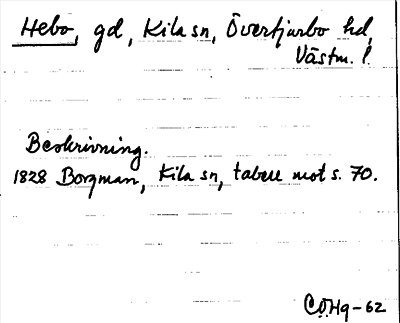 Hebo, gd, Kila sn, Övertjurbo hd,
Västm. l.
Beskrivning.
1828 Borgman, Kila sn, tabell mot s. 70.
C.O.Hq-62